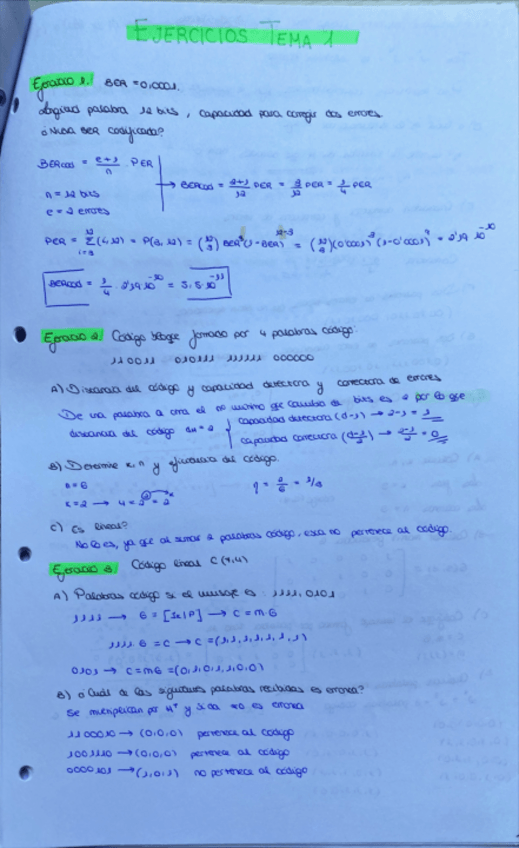 EJERCICIOS TEMA 1
Ejercicio 1. BER = 0,0001.
Longitud palabra 12 bits, capacidad para corregir dos errores
¿Nueva BER codificada?
BERcod = e+1/n · PER
→ BERcod = 2+1/12 PER = 3/12 PER = 1/4 PER
n = 12 bits
e = 2 errores
PER = Σ (i,12) = P(3,12) = (12/3) BER³ (1-BER)¹²⁻³ = (12/3)(0'0001)³ (1-0'0001)⁹ = 2'19 10⁻¹⁰
BERcod = 1/4 · 2'19 10⁻¹⁰ = 5,5·10⁻¹¹
Ejercicio 2. Código bloque formado por 4 palabras código:
110011 010111 111111 000000
A) Distancia del código y capacidad detectora y correctora de errores
De una palabra a otra el nº mínimo que cambia de bits es 2 por lo que
distancia del código dH = 2
capacidad detectora (d-1) → 2-1 = 1
capacidad correctora (d-1/2) → 2-1/2 = 0
B) Determine k, n y eficiencia del código.
n = 6
η = 2/6 = 1/3
k = 2 → 4 = 2² = 2ᵏ
C) ¿Es lineal?
No lo es, ya que al sumar 2 palabras código, esta no pertenece al código.
Ejercicio 3. Código lineal C(7,4)
A) Palabras código si el mensaje es 1111, 0101
1111 → G = [Ik|P] → C = m·G
1111·G = C → C = (1,1,1,1,1,1,1)
0101 → C = mG = (0,1,0,1,1,0,0)
B) ¿Cuál de las siguientes palabras recibidas es errónea?
Se multiplican por Hᵀ y si da ≠0 es errónea
1100010 → (0,0,0) pertenece al código
1001110 → (0,0,0) pertenece al código
0000101 → (1,0,1) no pertenece al código